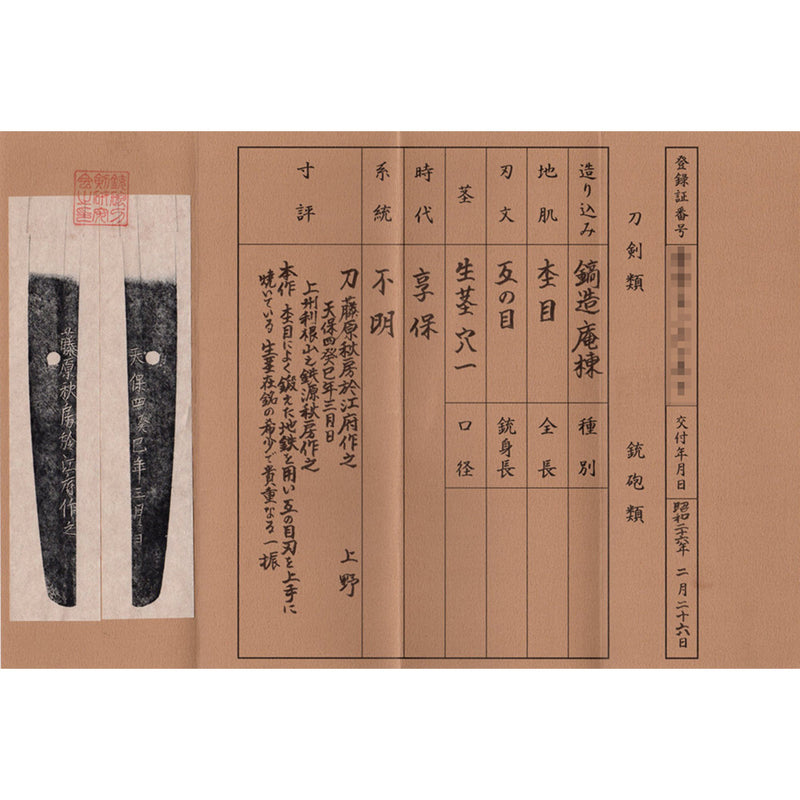 登録証番号
交付年月日
昭和二十六年 二月二十六日
刀剣類
銃砲類
造り込み
鎬造庵棟
種別
地肌
杢目
全長
刃文
互の目
銃身長
茎
生茎 穴一
口径
時代
享保
系統
不明
寸評
刀 藤原秋房於江府作之 上野
天保四癸巳年三月日
上州利根山之鉄源秋房作之
本作 杢目によく鍛えた地鉄を用い 互の目刃を上手に
焼いている 生茎在銘の希少で貴重なる一振
天保四癸巳年三月日
藤原秋房於江府作之